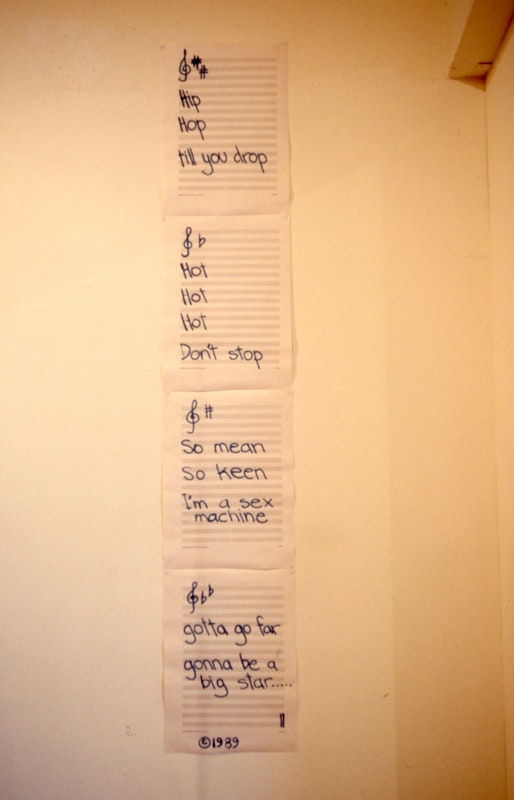 Hip
Hop
till you drop
Hot
Hot
Hot
Don't stop
So mean
So keen
I'm a sex
machine
gotta go far
gonna be a
big star.....
©1989